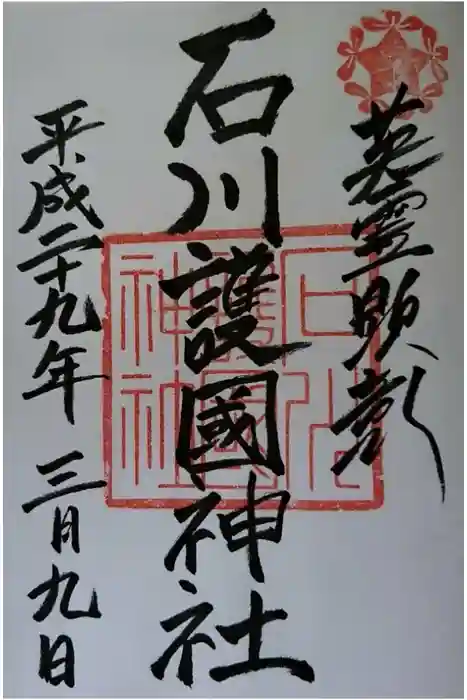 英霊顕彰
石川護國神社
平成二十九年三月九日
石川護國神社